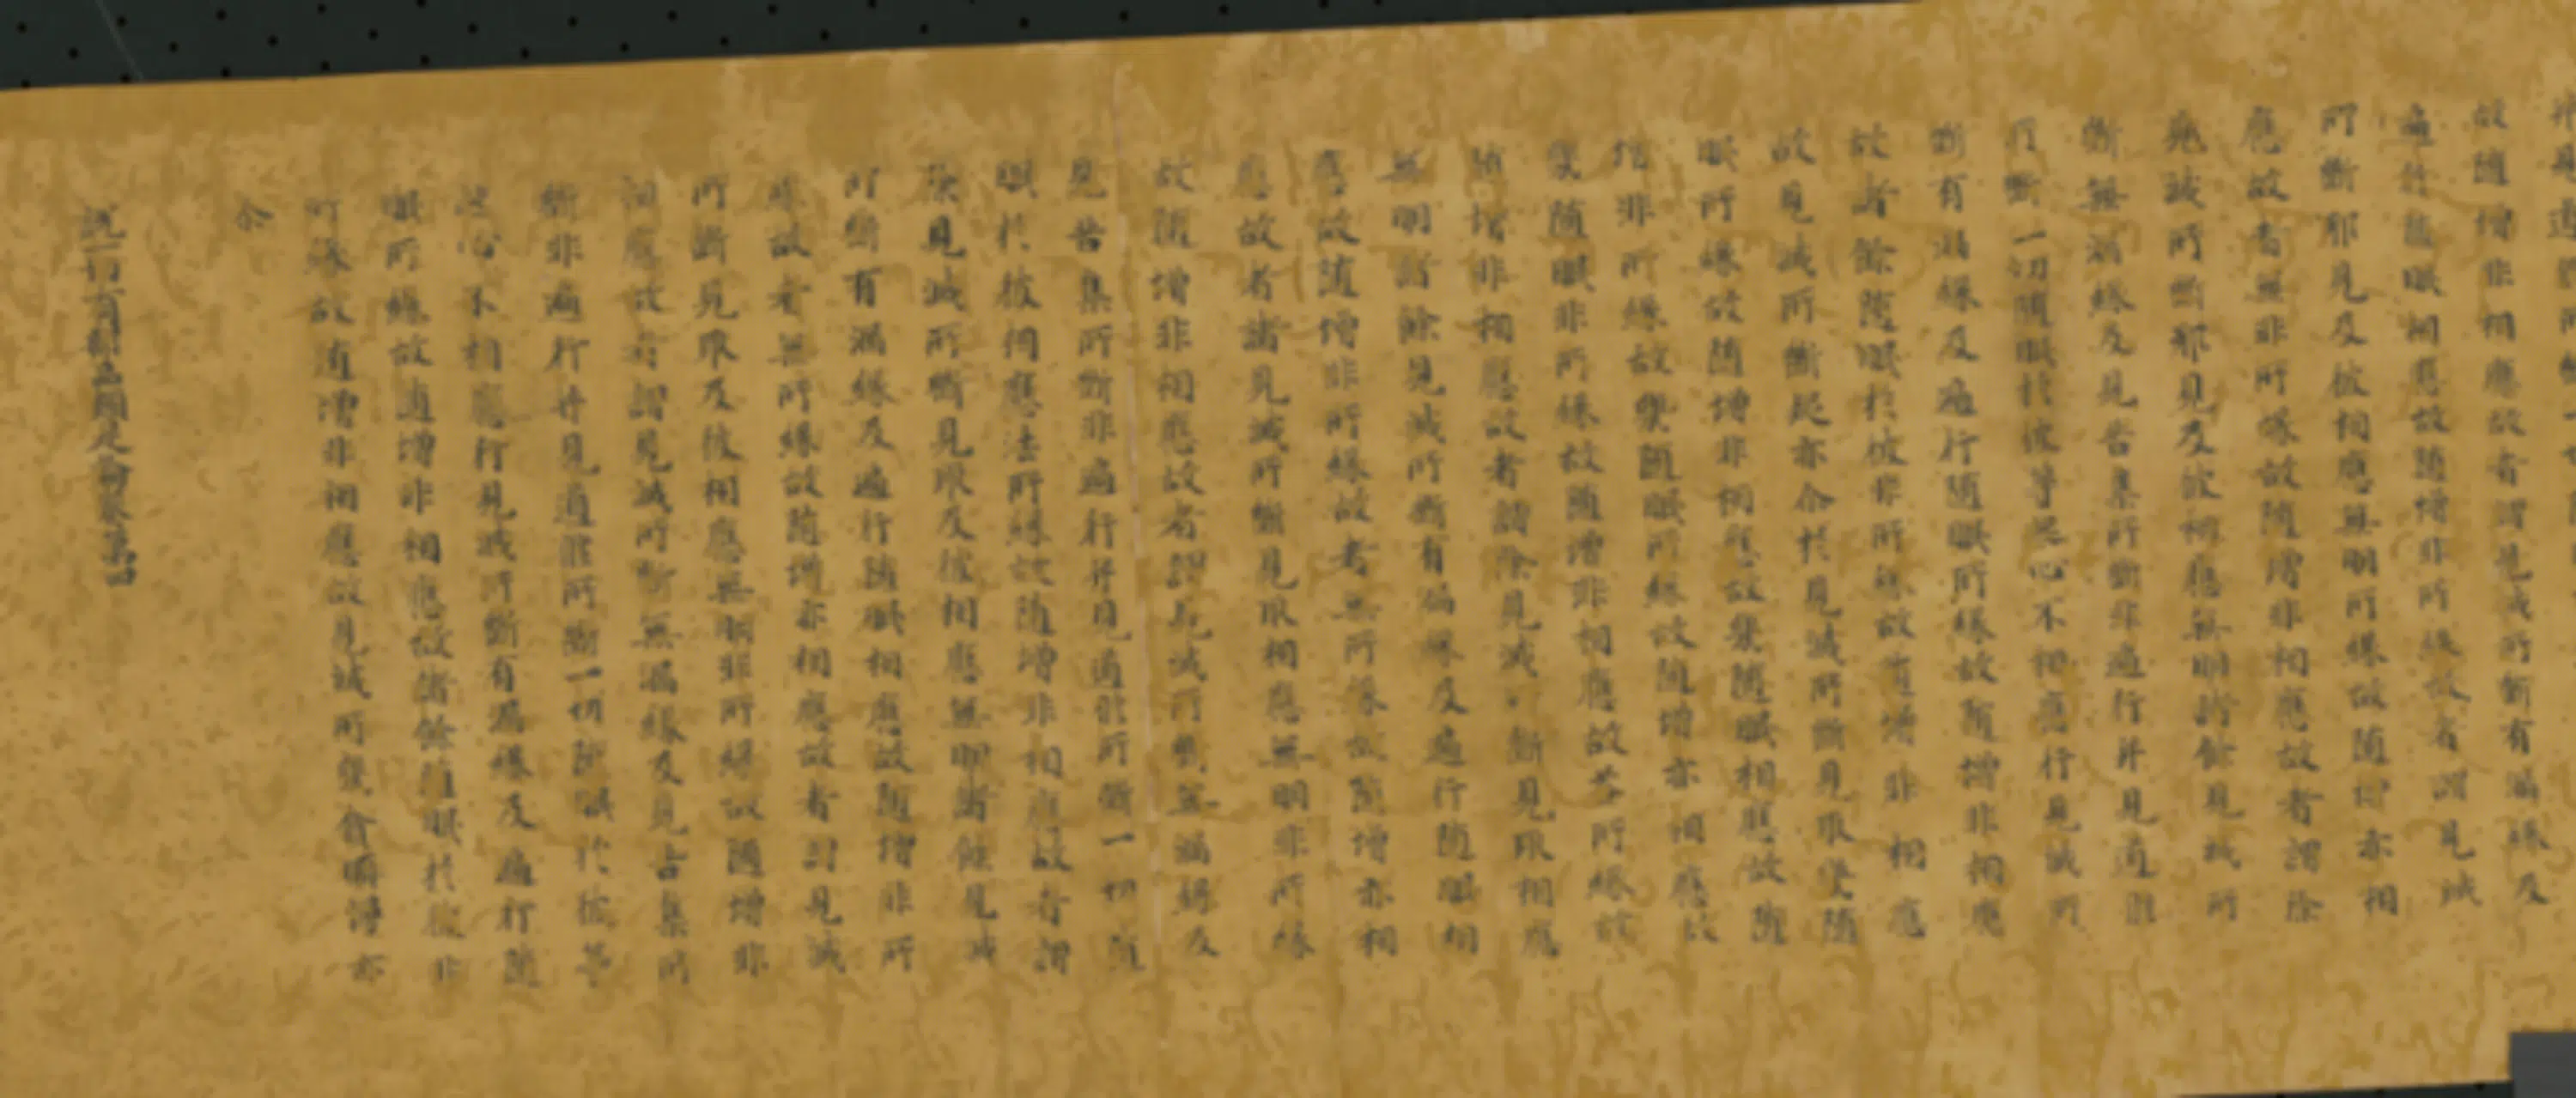 并見道所斷
故随增非相應故者謂見滅所斷有漏緣及
遍行随眠相應故随增非所緣故者謂見滅
所斷邪見及彼相應無明所緣故随增亦相
應故者無非所緣故随增非相應故者謂除
見滅所斷邪見及彼相應無明諸餘見滅所
斷無漏緣及見苦集所斷非遍行并見道所
所斷一切随眠於彼等起心不相應行見滅所
斷有漏緣及遍行随眠所緣故随增非相應
故者餘随眠於彼非所緣故随增非相應
故見滅所斷疑亦尒於見滅所斷見取變随
眠所緣故随增非相應故變随眠相應故随
增非所緣故變随眠所緣故随增亦相應故
變随眠非所緣故随增非相應故者所緣故
随增非相應故者謂除見滅所斷見取相應
無明諸餘見滅所斷有漏緣及遍行随眠相
應故随增非所緣故者無所緣故随增亦相
應故者諸見滅所斷見取相應無明非所緣
故随增非相應故者謂見滅所斷無漏緣及
見苦集所斷非遍行并見道所斷一切随
眠於彼相應法所緣故随增非相應故者謂
除見滅所斷見取及彼相應無明諸餘見滅
所斷有漏緣及遍行随眠相應故随增非所
緣故者無所緣故随增亦相應故者謂見滅
所斷見取及彼相應無明非所緣故随增非
相應故者謂見滅所斷無漏緣及見苦集所
斷非遍行并見道所斷一切随眠於彼等
起心不相應行見滅所斷有漏緣及遍行随
眠所緣故随增非相應故諸餘随眠於彼非
所緣故随增非相應故見滅所斷貪瞋慢亦
尒
說一切有部品類足論卷第四